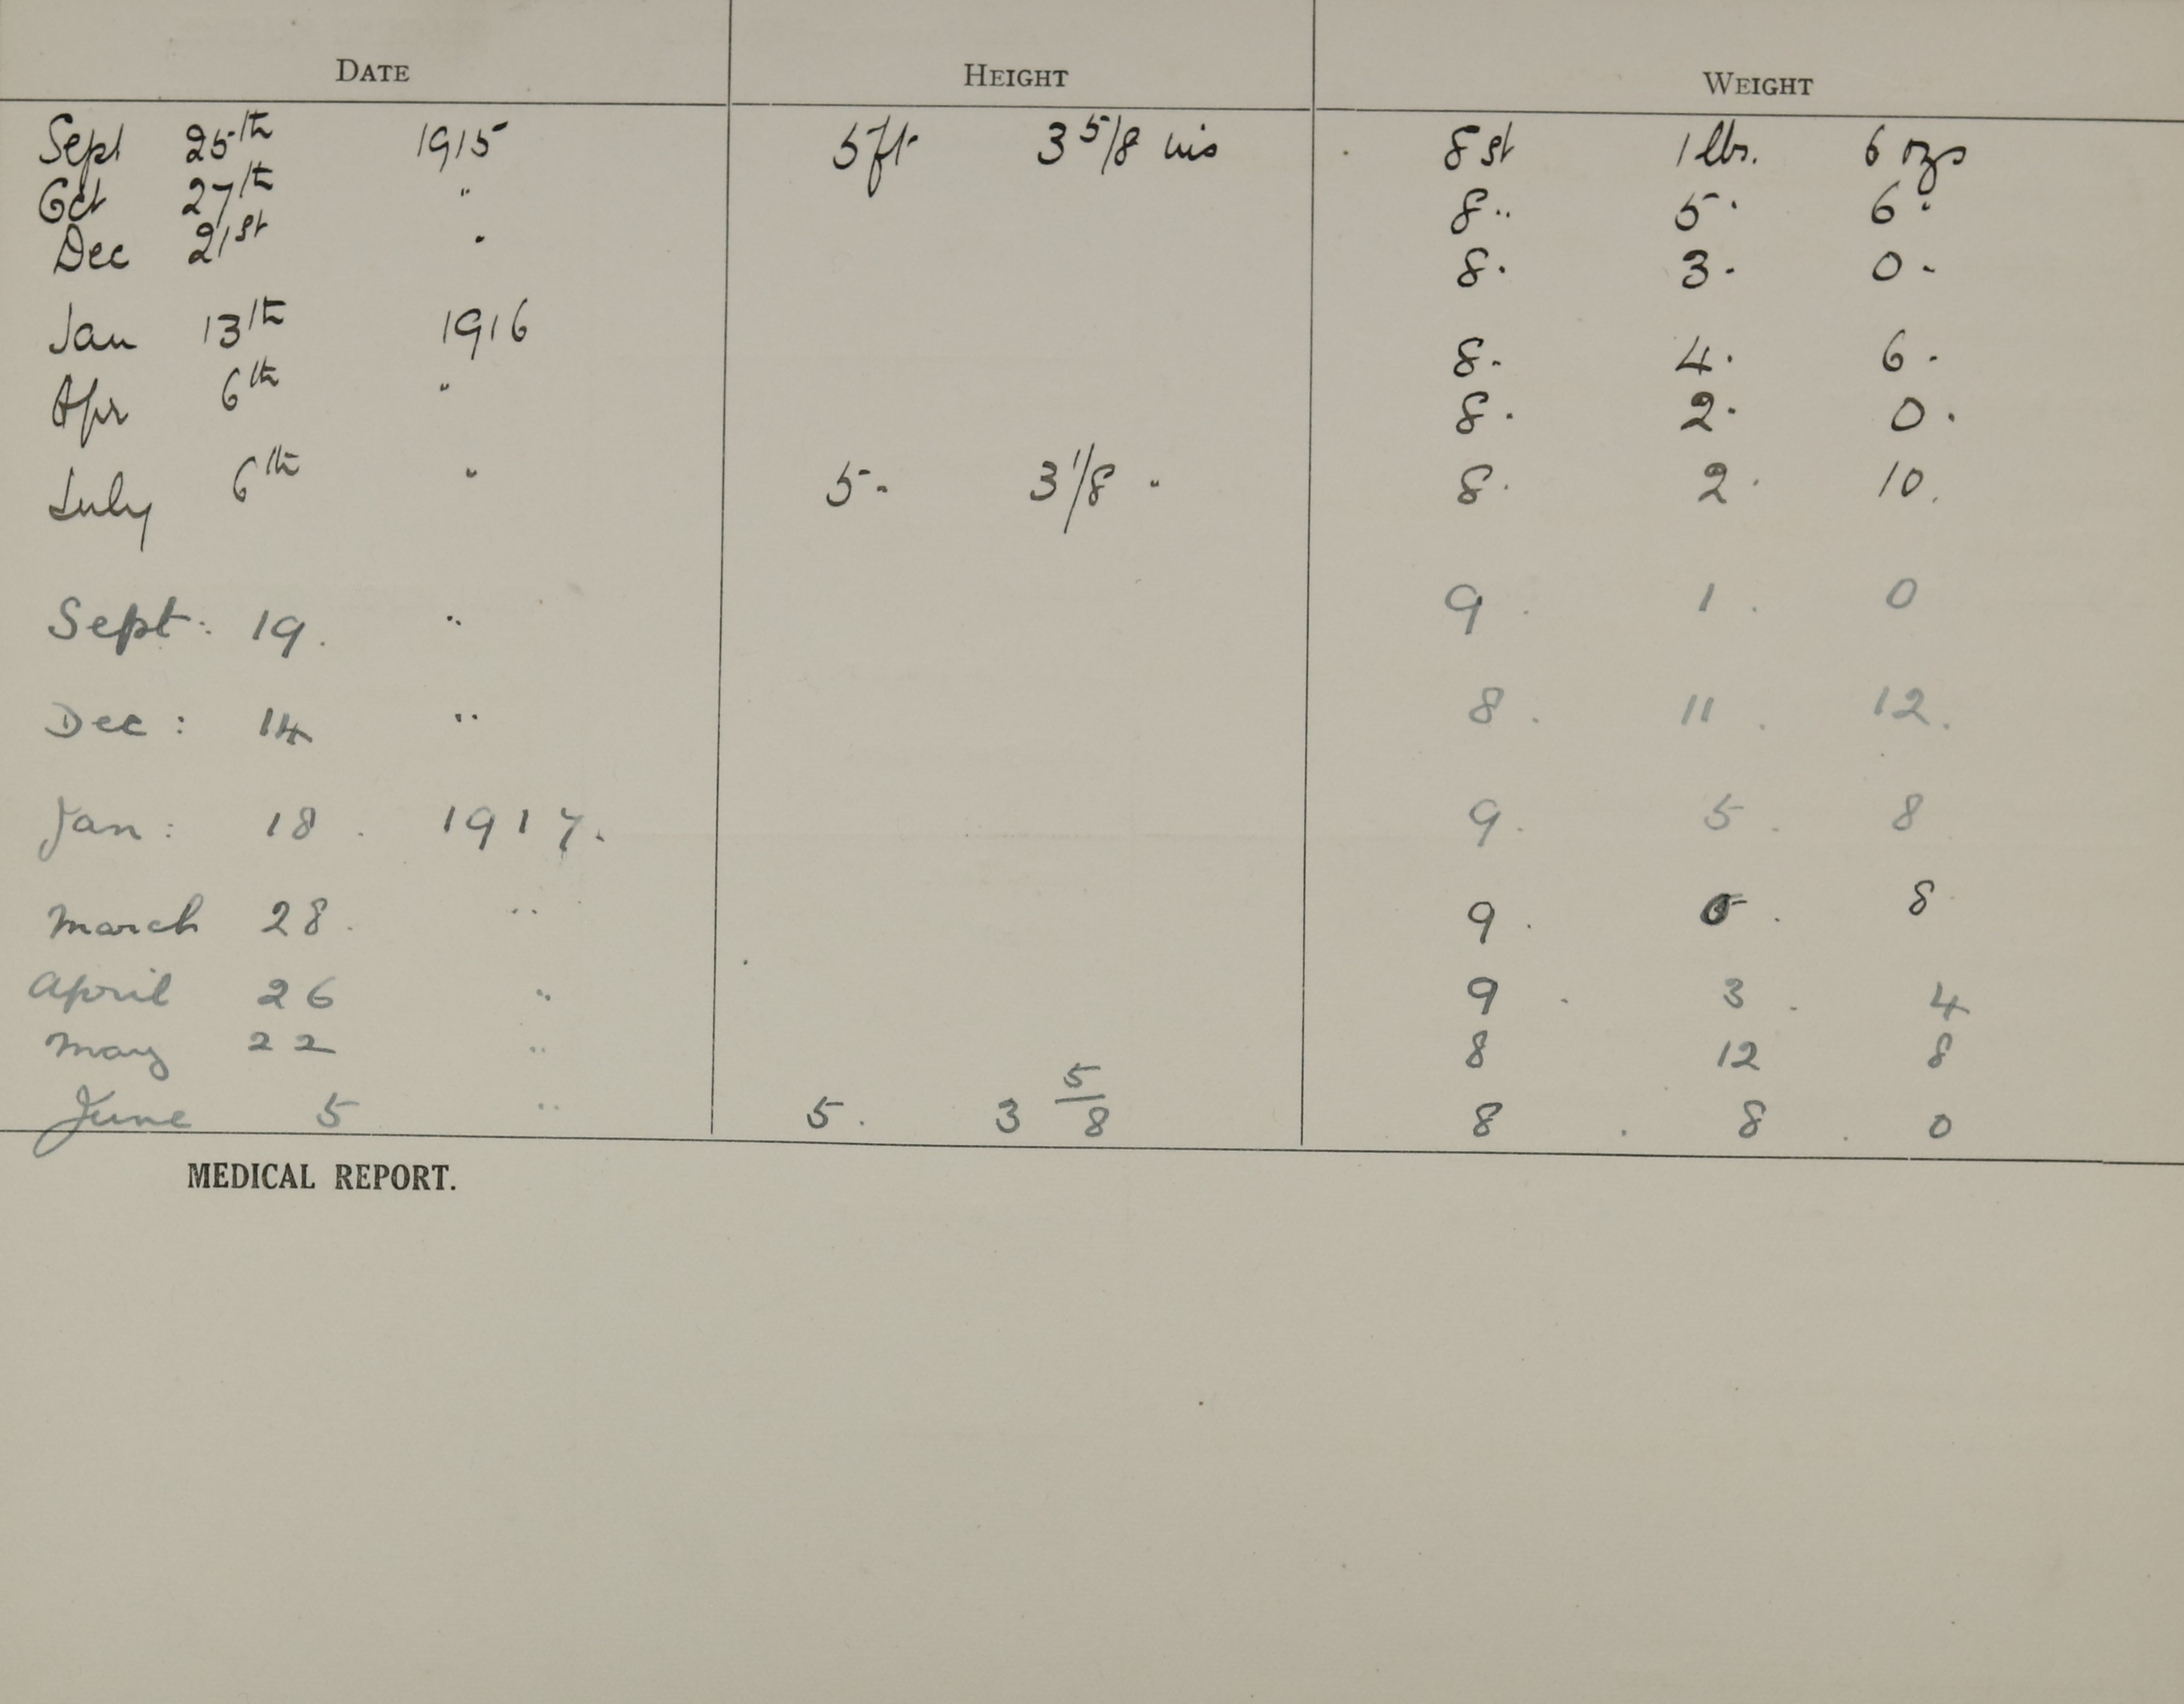 DATE HEIGHT WEIGHT
Sept 25th 1915 5ft 3 5/8 ins 8 st 1 lbs. 6 ozs
Oct 27th " 8 .. 5 . 6 .
Dec 21st " 8 . 3 . 0 .
Jan 13th 1916 8 . 4 . 6 .
Apr 6th " 8 . 2 . 0 .
July 6th " 5 " 3 1/8 " 8 . 2 . 10 .
Sept : 19 . " 9 . 1 . 0
Dec : 14 " 8 . 11 . 12 .
Jan : 18 . 1917 . 9 . 5 . 8
March 28 . " 9 . . 8
April 26 " 9 . 3 . 4
May 22 " 8 12 8
June 5 " 5 . 3 5/8 8 . 8 . 0
MEDICAL REPORT.